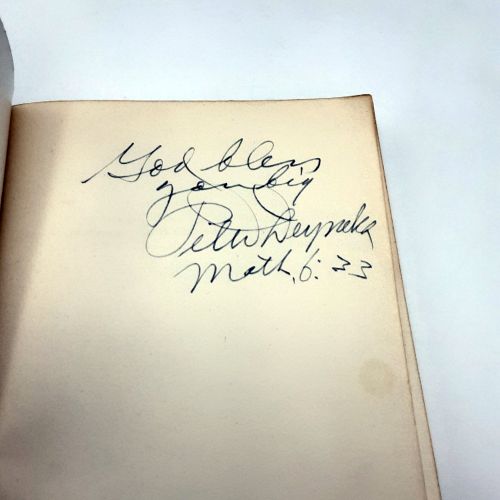 God bless
you big
Peter Deyneka
Math. 6:33